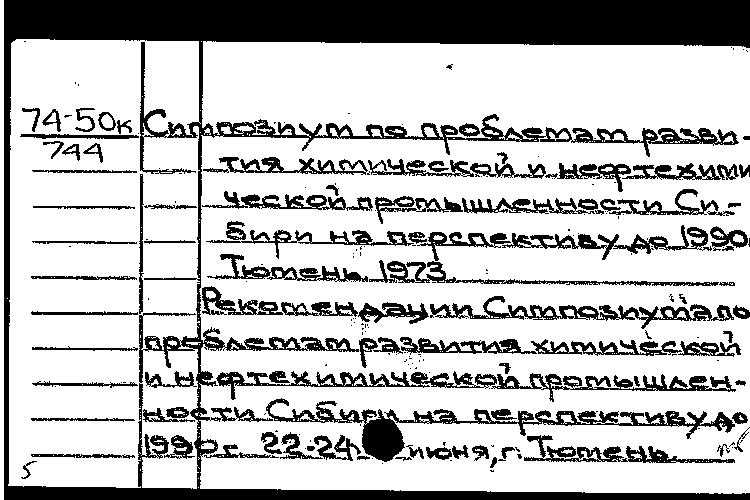 74-50к Симпозиум по проблемам разви-
744
тия химической и нефтехими
ческой промышленности Си-
бири на перспективу до 1990
Тюмень 1973.
Рекомендации Симпозиума по
проблемам развития химической
и нефтехимической промышлен-
ности Сибири на перспективу до
1990 г. 22-24 июня, г. Тюмень.
5